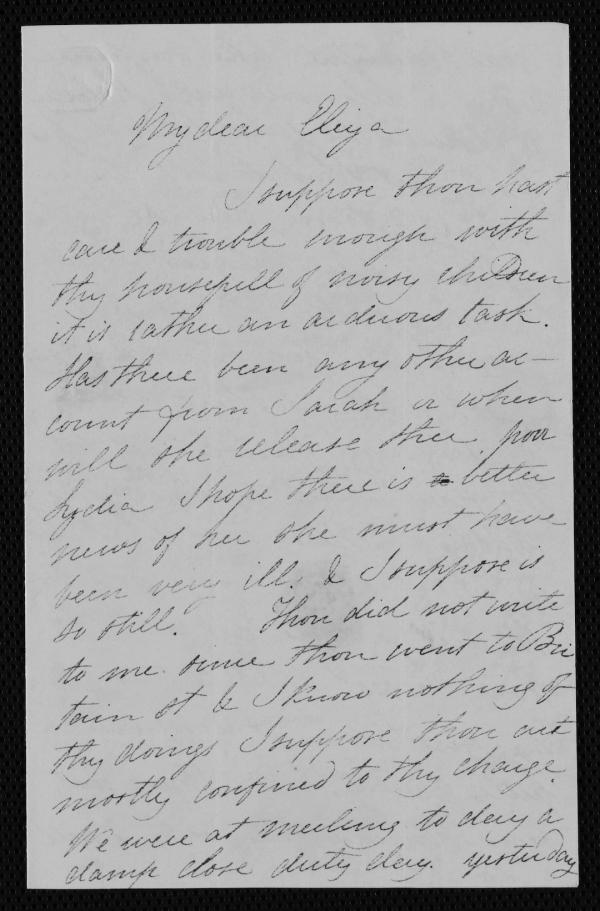 My dear Eliza
I suppose thou hast
care & trouble enough with
thy housefull of noisy children
it is rather an arduous task.
Has there been any other ac-
count from Sarah or when
will she release thee. poor
Lydia I hope there is better
news of her she must have
been very ill. & I suppose is
so still. Thou did not write
to me since thou went to Bri
tain st & I know nothing of
thy doings I suppose thou art
mostly confined to thy charge.
We were at meeting to day a
damp close dirty day. yesterday